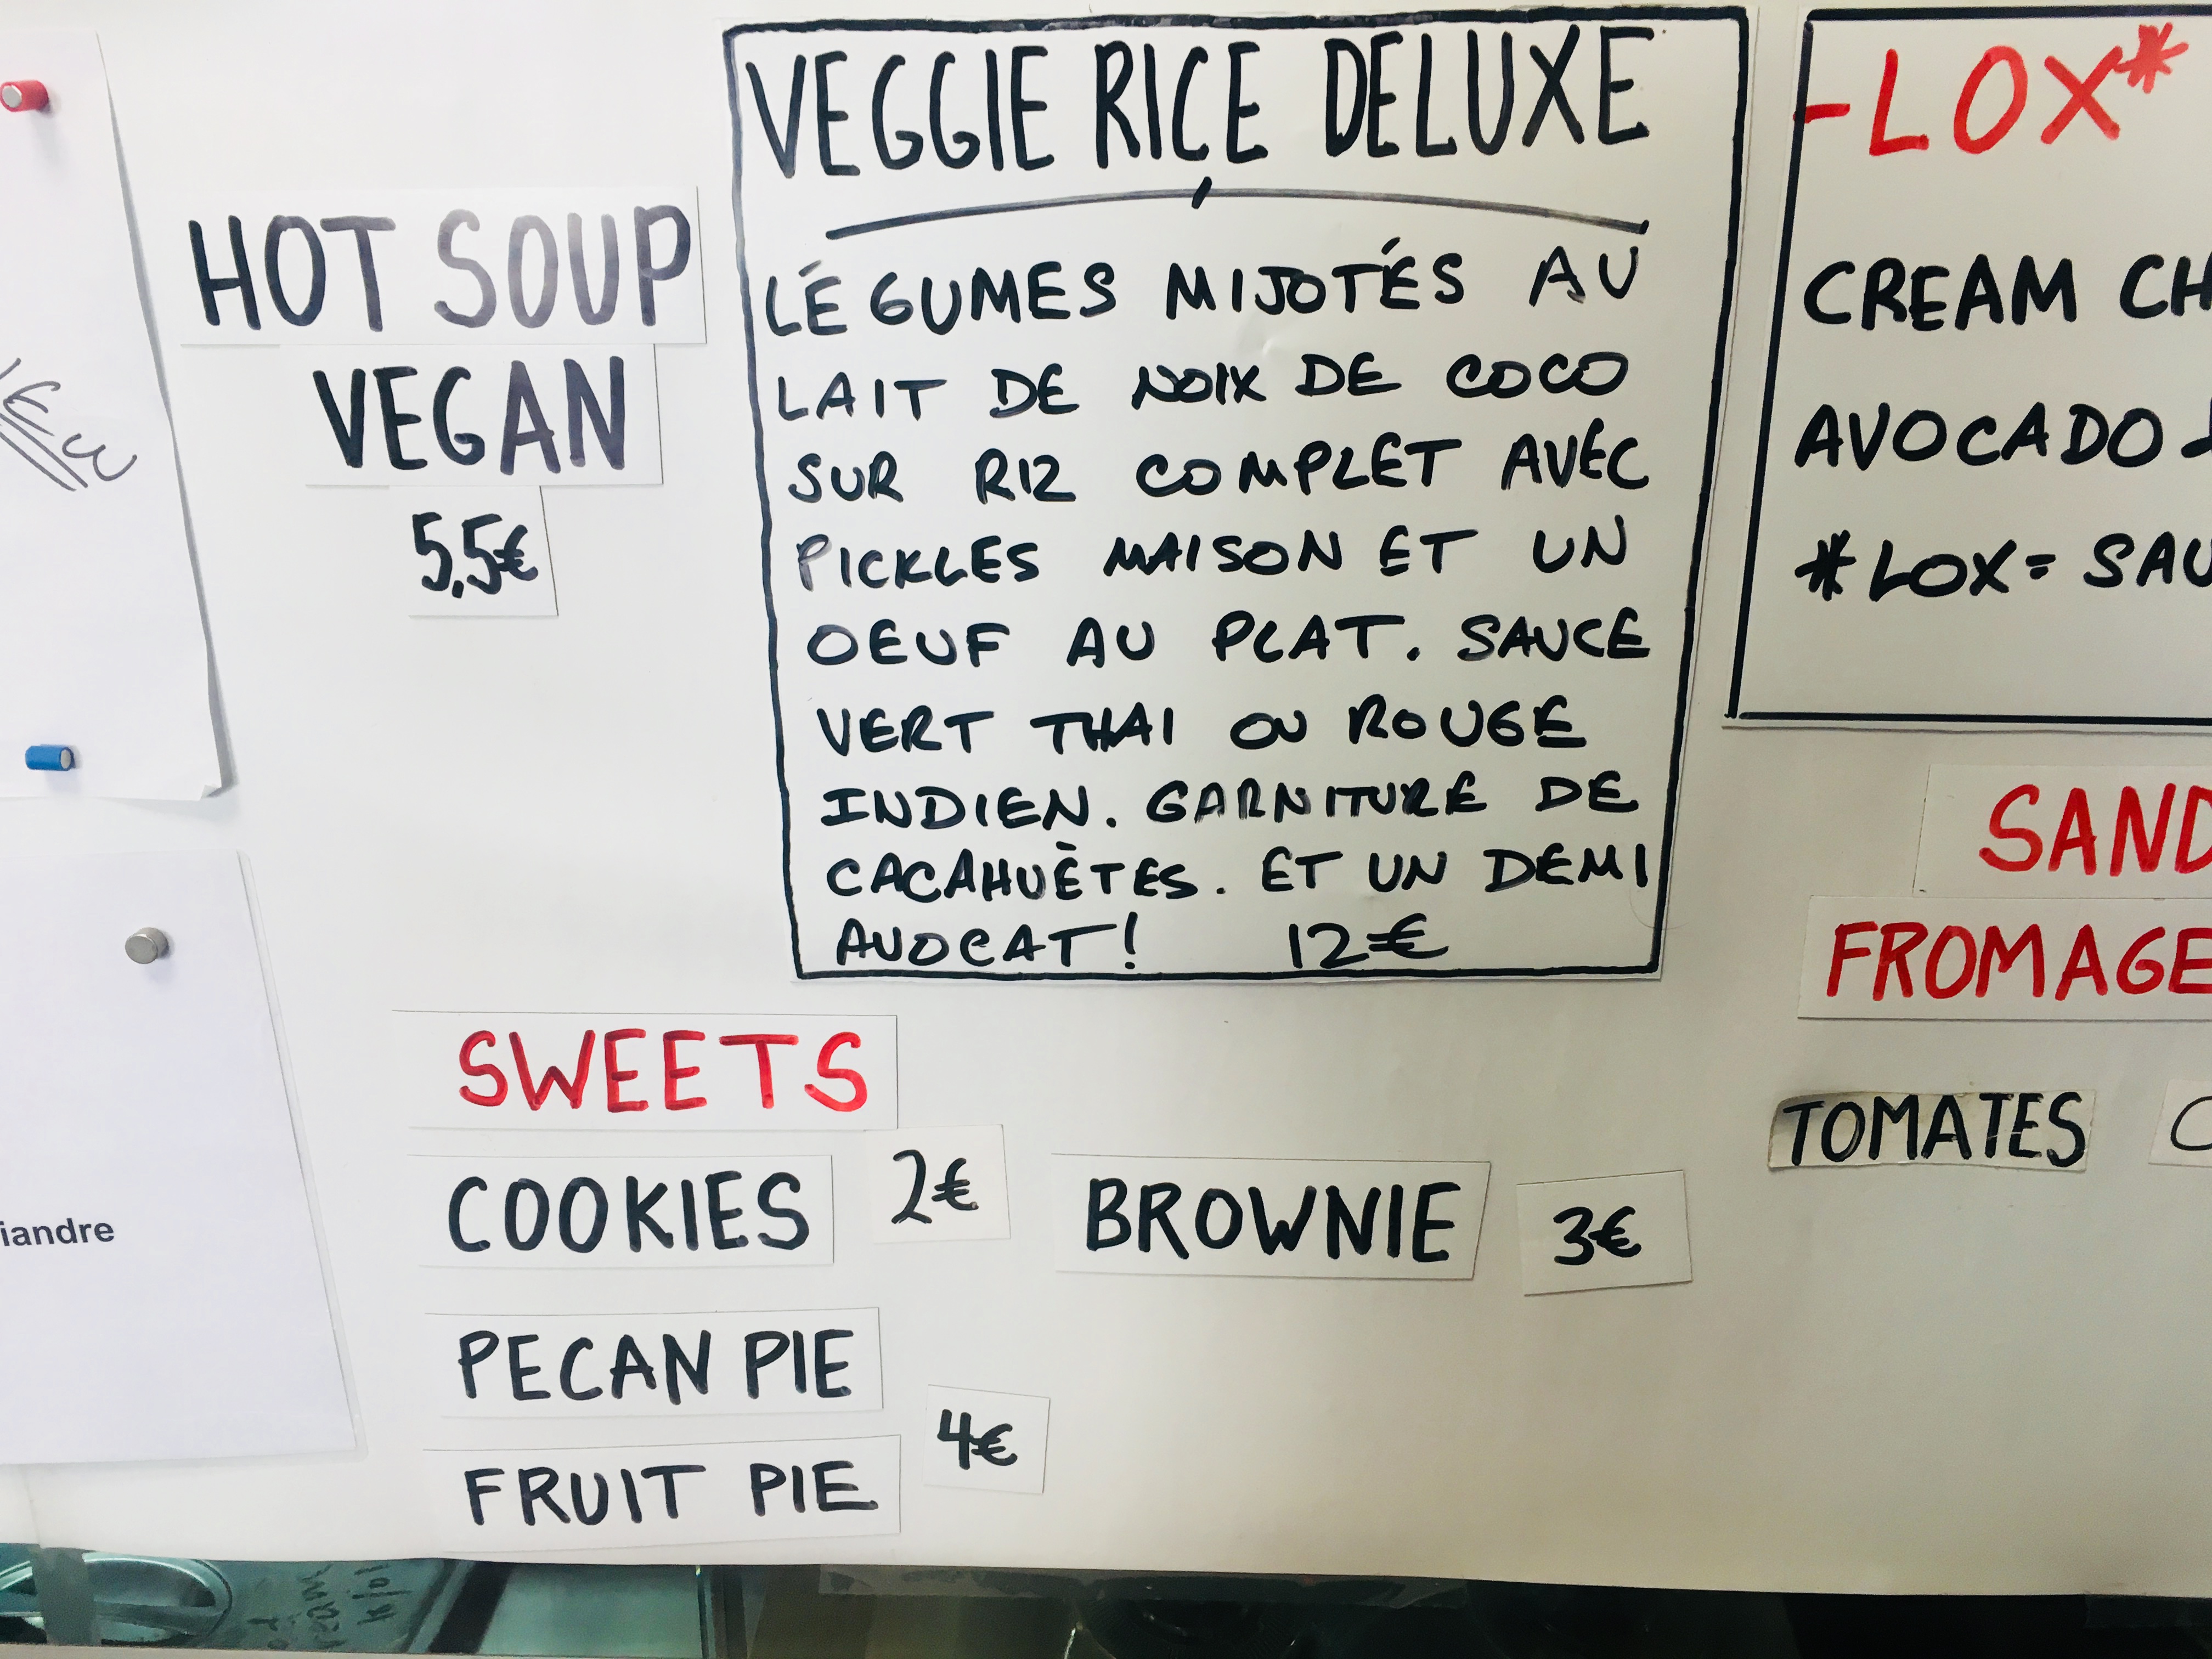 HOT SOUP
VEGAN
5,5€
VEGGIE RICE DELUXE
LÉGUMES MIJOTÉS AU
LAIT DE NOIX DE COCO
SUR RIZ COMPLET AVEC
PICKLES MAISON ET UN
OEUF AU PLAT. SAUCE
VERT THAI OU ROUGE
INDIEN. GARNITURE DE
CACAHUÈTES. ET UN DEMI
AVOCAT! 12€
-LOX*
CREAM CH
AVOCADO
*LOX= SAU
SAND
FROMAGE
TOMATES
SWEETS
COOKIES 2€ BROWNIE 3€
PECAN PIE
4€
FRUIT PIE
iandre